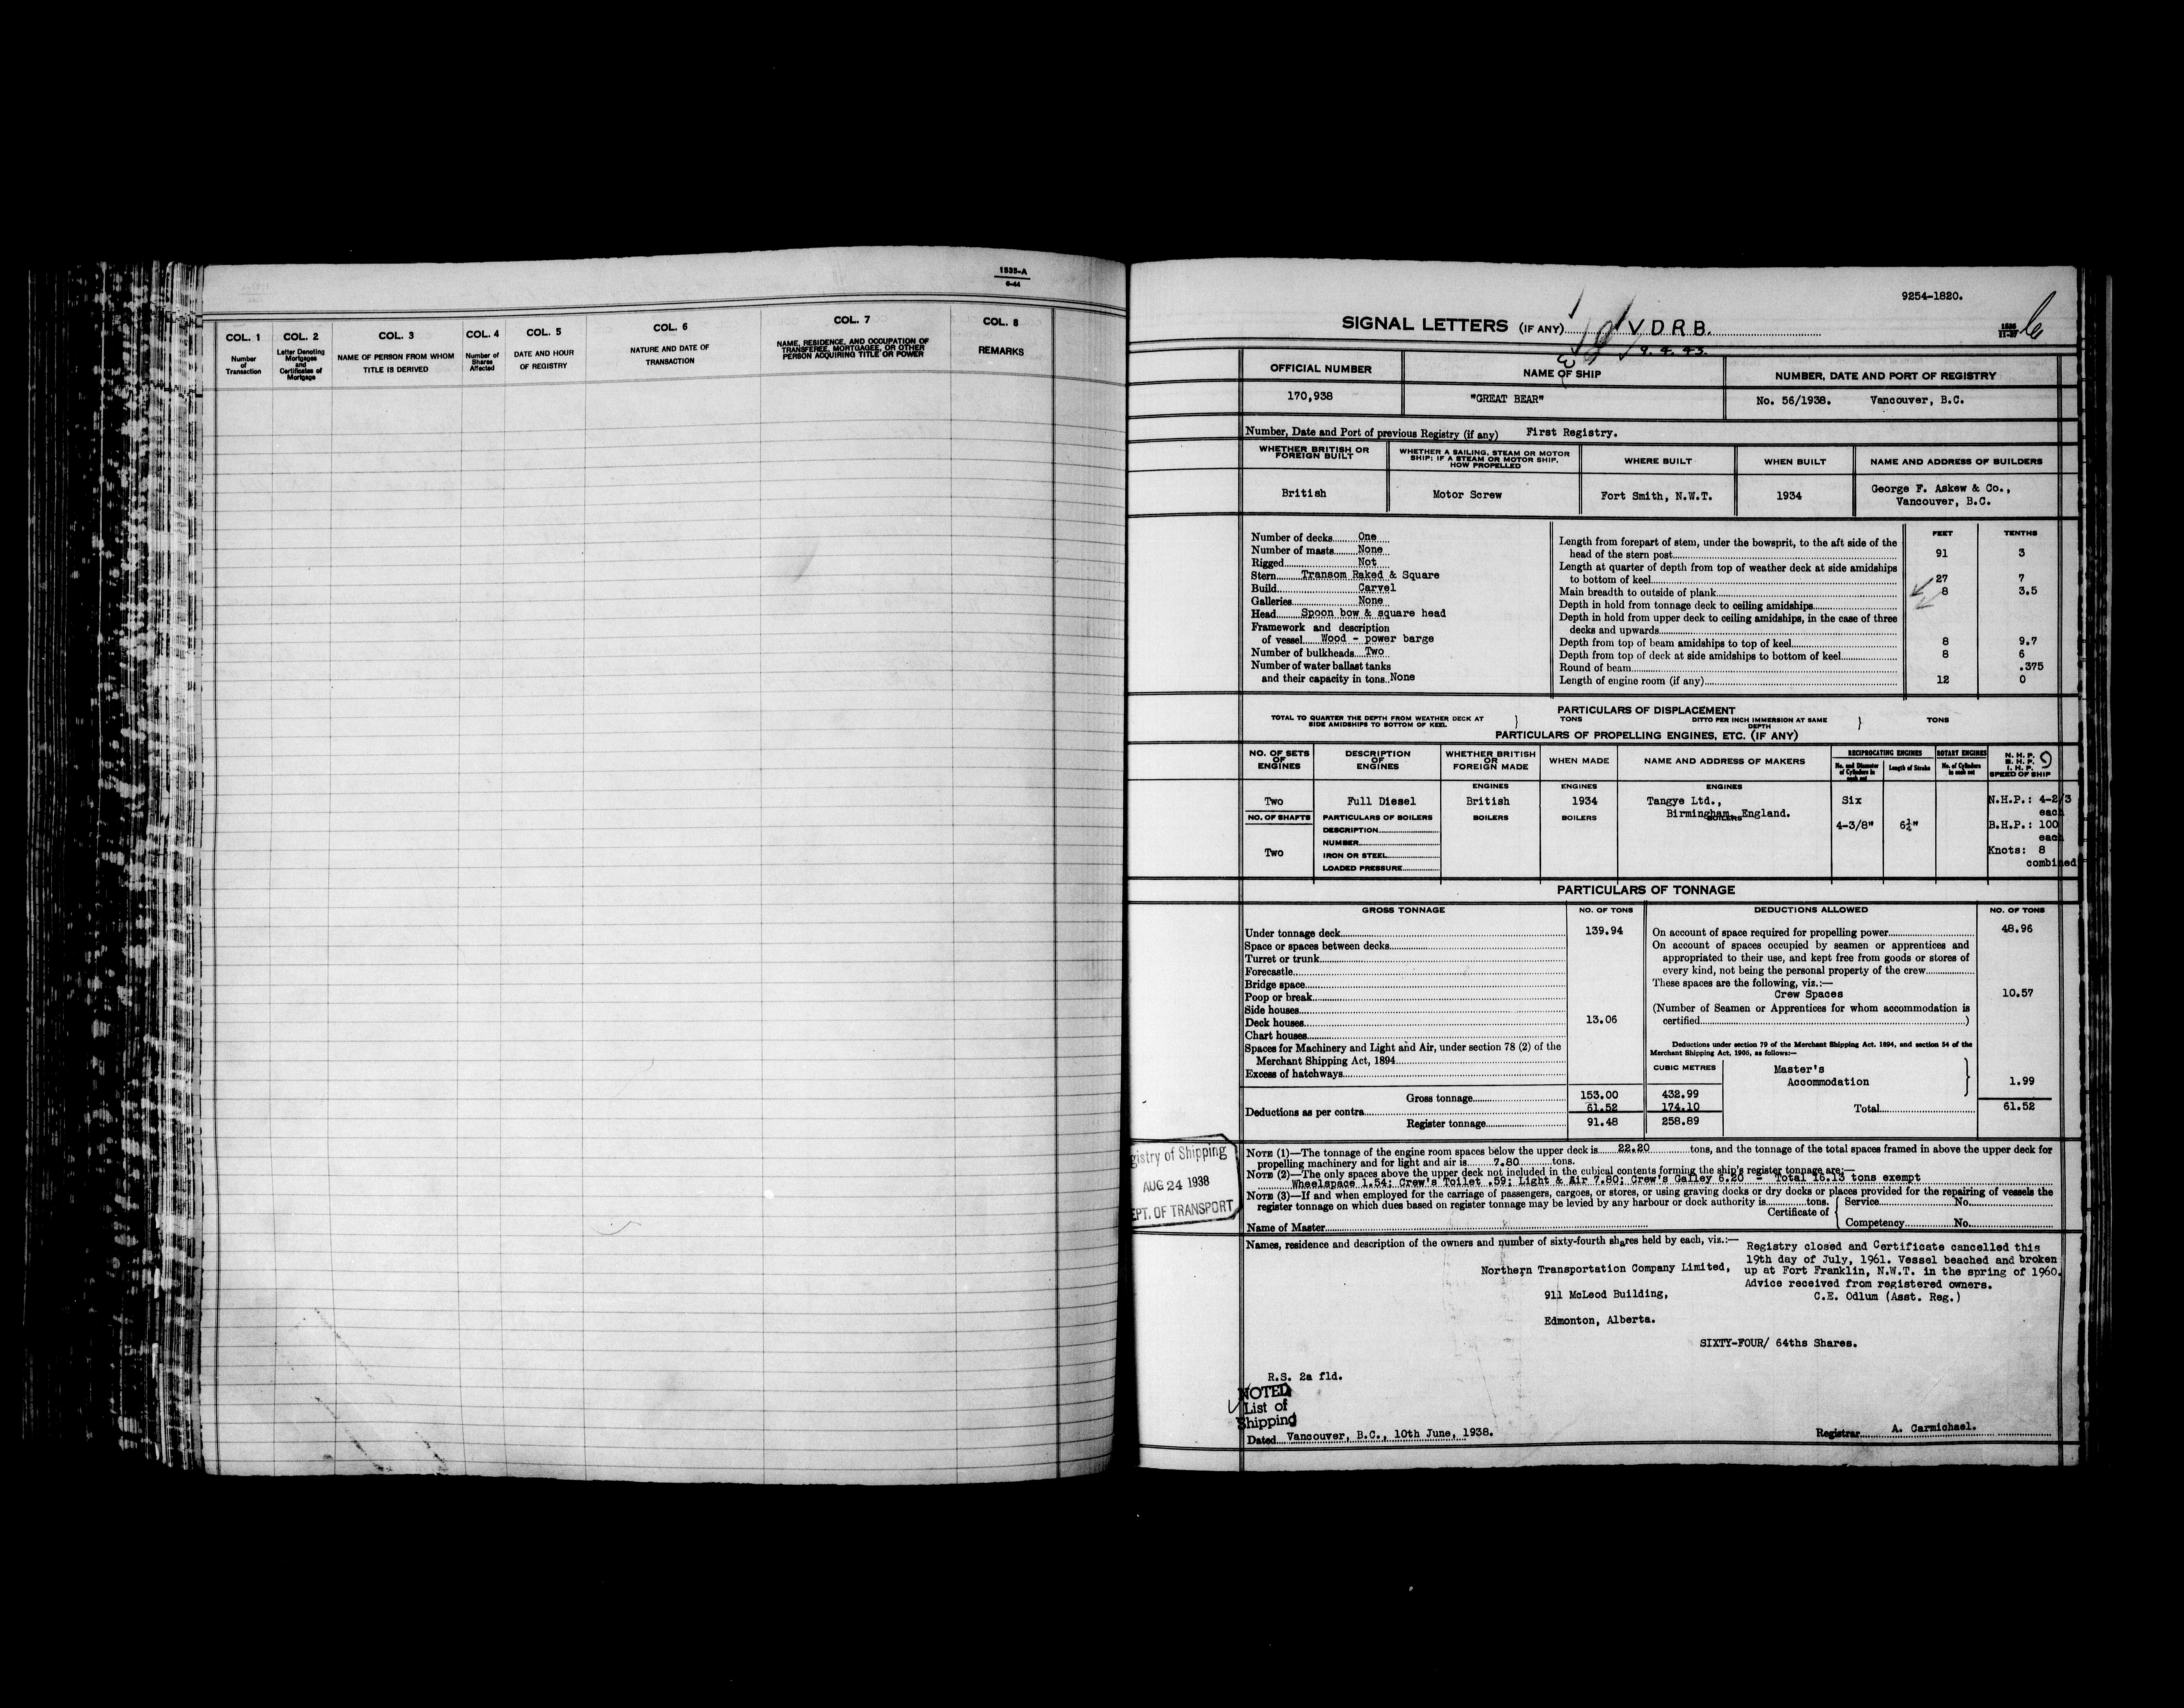 1535-A
6-44
COL. 1
Number
of
Transaction
COL. 2
Letter Denoting
Mortgages
and
Certificates of
Mortgage
COL. 3
NAME OF PERSON FROM WHOM
TITLE IS DERIVED
COL. 4
Number of
Shares
Affected
COL. 5
DATE AND HOUR
OF REGISTRY
COL. 6
NATURE AND DATE OF
TRANSACTION
COL. 7
NAME, RESIDENCE, AND OCCUPATION OF
TRANSFEREE, MORTGAGEE, OR OTHER
PERSON ACQUIRING TITLE OR POWER
COL. 8
REMARKS
9254-1820.
SIGNAL LETTERS (IF ANY) V.D.R.B.
9.4.43.
1535
11-37
6
OFFICIAL NUMBER
NAME OF SHIP
NUMBER, DATE AND PORT OF REGISTRY
170,938
"GREAT BEAR"
No. 56/1938. Vancouver, B.C.
Number, Date and Port of previous Registry (if any) First Registry.
WHETHER BRITISH OR
FOREIGN BUILT
WHETHER A SAILING, STEAM OR MOTOR
SHIP; IF A STEAM OR MOTOR SHIP,
HOW PROPELLED
WHERE BUILT
WHEN BUILT
NAME AND ADDRESS OF BUILDERS
British
Motor Screw
Fort Smith, N.W.T.
1934
George F. Askew & Co.,
Vancouver, B.C.
Number of decks One
Number of masts None
Rigged Not
Stern Transom Raked & Square
Build Carvel
Galleries None
Head Spoon bow & square head
Framework and description
of vessel Wood - power barge
Number of bulkheads Two
Number of water ballast tanks
and their capacity in tons None
FEET TENTHS
Length from forepart of stem, under the bowsprit, to the aft side of the
head of the stern post 91 3
Length at quarter of depth from top of weather deck at side amidships
to bottom of keel 27 7
Main breadth to outside of plank 8 3.5
Depth in hold from tonnage deck to ceiling amidships
Depth in hold from upper deck to ceiling amidships, in the case of three
decks and upwards
Depth from top of beam amidships to top of keel 8 9.7
Depth from top of deck at side amidships to bottom of keel 8 6
Round of beam .375
Length of engine room (if any) 12 0
PARTICULARS OF DISPLACEMENT
TOTAL TO QUARTER THE DEPTH FROM WEATHER DECK AT
SIDE AMIDSHIPS TO BOTTOM OF KEEL } TONS
DITTO PER INCH IMMERSION AT SAME
DEPTH } TONS
PARTICULARS OF PROPELLING ENGINES, ETC. (IF ANY)
NO. OF SETS
OF
ENGINES
DESCRIPTION
OF
ENGINES
WHETHER BRITISH
OR
FOREIGN MADE
WHEN MADE
NAME AND ADDRESS OF MAKERS
RECIPROCATING ENGINES
No. and Diameter
of Cylinders in
each set
Length of Stroke
ROTARY ENGINES
No. of Cylinders
in each set
N. H. P.
B. H. P.
I. H. P.
SPEED OF SHIP
9
ENGINES
ENGINES
ENGINES
Two
Full Diesel
British
1934
Tangye Ltd.,
Birmingham, England.
Six
4-3/8"
6½"
N.H.P.: 4-2/3
each
B.H.P.: 100
each
Knots: 8
combined
NO. OF SHAFTS
Two
PARTICULARS OF BOILERS
DESCRIPTION
NUMBER
IRON OR STEEL
LOADED PRESSURE
BOILERS
BOILERS
BOILERS
PARTICULARS OF TONNAGE
GROSS TONNAGE
NO. OF TONS
DEDUCTIONS ALLOWED
NO. OF TONS
Under tonnage deck 139.94
Space or spaces between decks
Turret or trunk
Forecastle
Bridge space
Poop or break
Side houses
Deck houses 13.06
Chart houses
Spaces for Machinery and Light and Air, under section 78 (2) of the
Merchant Shipping Act, 1894
Excess of hatchways
CUBIC METRES
Gross tonnage 153.00 432.99
Deductions as per contra 61.52 174.10
Register tonnage 91.48 258.89
On account of space required for propelling power 48.96
On account of spaces occupied by seamen or apprentices and
appropriated to their use, and kept free from goods or stores of
every kind, not being the personal property of the crew
These spaces are the following, viz.:—
Crew Spaces 10.57
(Number of Seamen or Apprentices for whom accommodation is
certified)
Deductions under section 79 of the Merchant Shipping Act. 1894, and section 54 of the
Merchant Shipping Act, 1906, as follows:—
Master's
Accommodation } 1.99
Total 61.52
gistry of Shipping
AUG 24 1938
EPT. OF TRANSPORT
NOTE (1)—The tonnage of the engine room spaces below the upper deck is 22.20 tons, and the tonnage of the total spaces framed in above the upper deck for
propelling machinery and for light and air is 7.80 tons.
NOTE (2)—The only spaces above the upper deck not included in the cubical contents forming the ship's register tonnage are:—
Wheelspace 1.54; Crew's Toilet .59; Light & Air 7.80; Crew's Galley 6.20 = Total 16.13 tons exempt
NOTE (3)—If and when employed for the carriage of passengers, cargoes, or stores, or using graving docks or dry docks or places provided for the repairing of vessels the
register tonnage on which dues based on register tonnage may be levied by any harbour or dock authority is tons.
Certificate of { Service No.
Competency No.
Name of Master
Names, residence and description of the owners and number of sixty-fourth shares held by each, viz.:—
Northern Transportation Company Limited,
911 McLeod Building,
Edmonton, Alberta.
Registry closed and Certificate cancelled this
19th day of July, 1961. Vessel beached and broken
up at Fort Franklin, N.W.T. in the spring of 1960.
Advice received from registered owners.
C.E. Odlum (Asst. Reg.)
SIXTY-FOUR/ 64ths Shares.
R.S. 2a fld.
NOTED
List of
Shipping
Dated Vancouver, B.C., 10th June, 1938.
Registrar A. Carmichael.